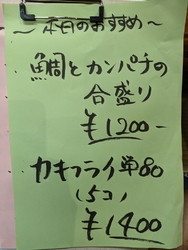 〜本日のおすすめ〜
鯛とカンパチの
合盛り
¥1200-
カキフライ単80
(5コ)
¥1400